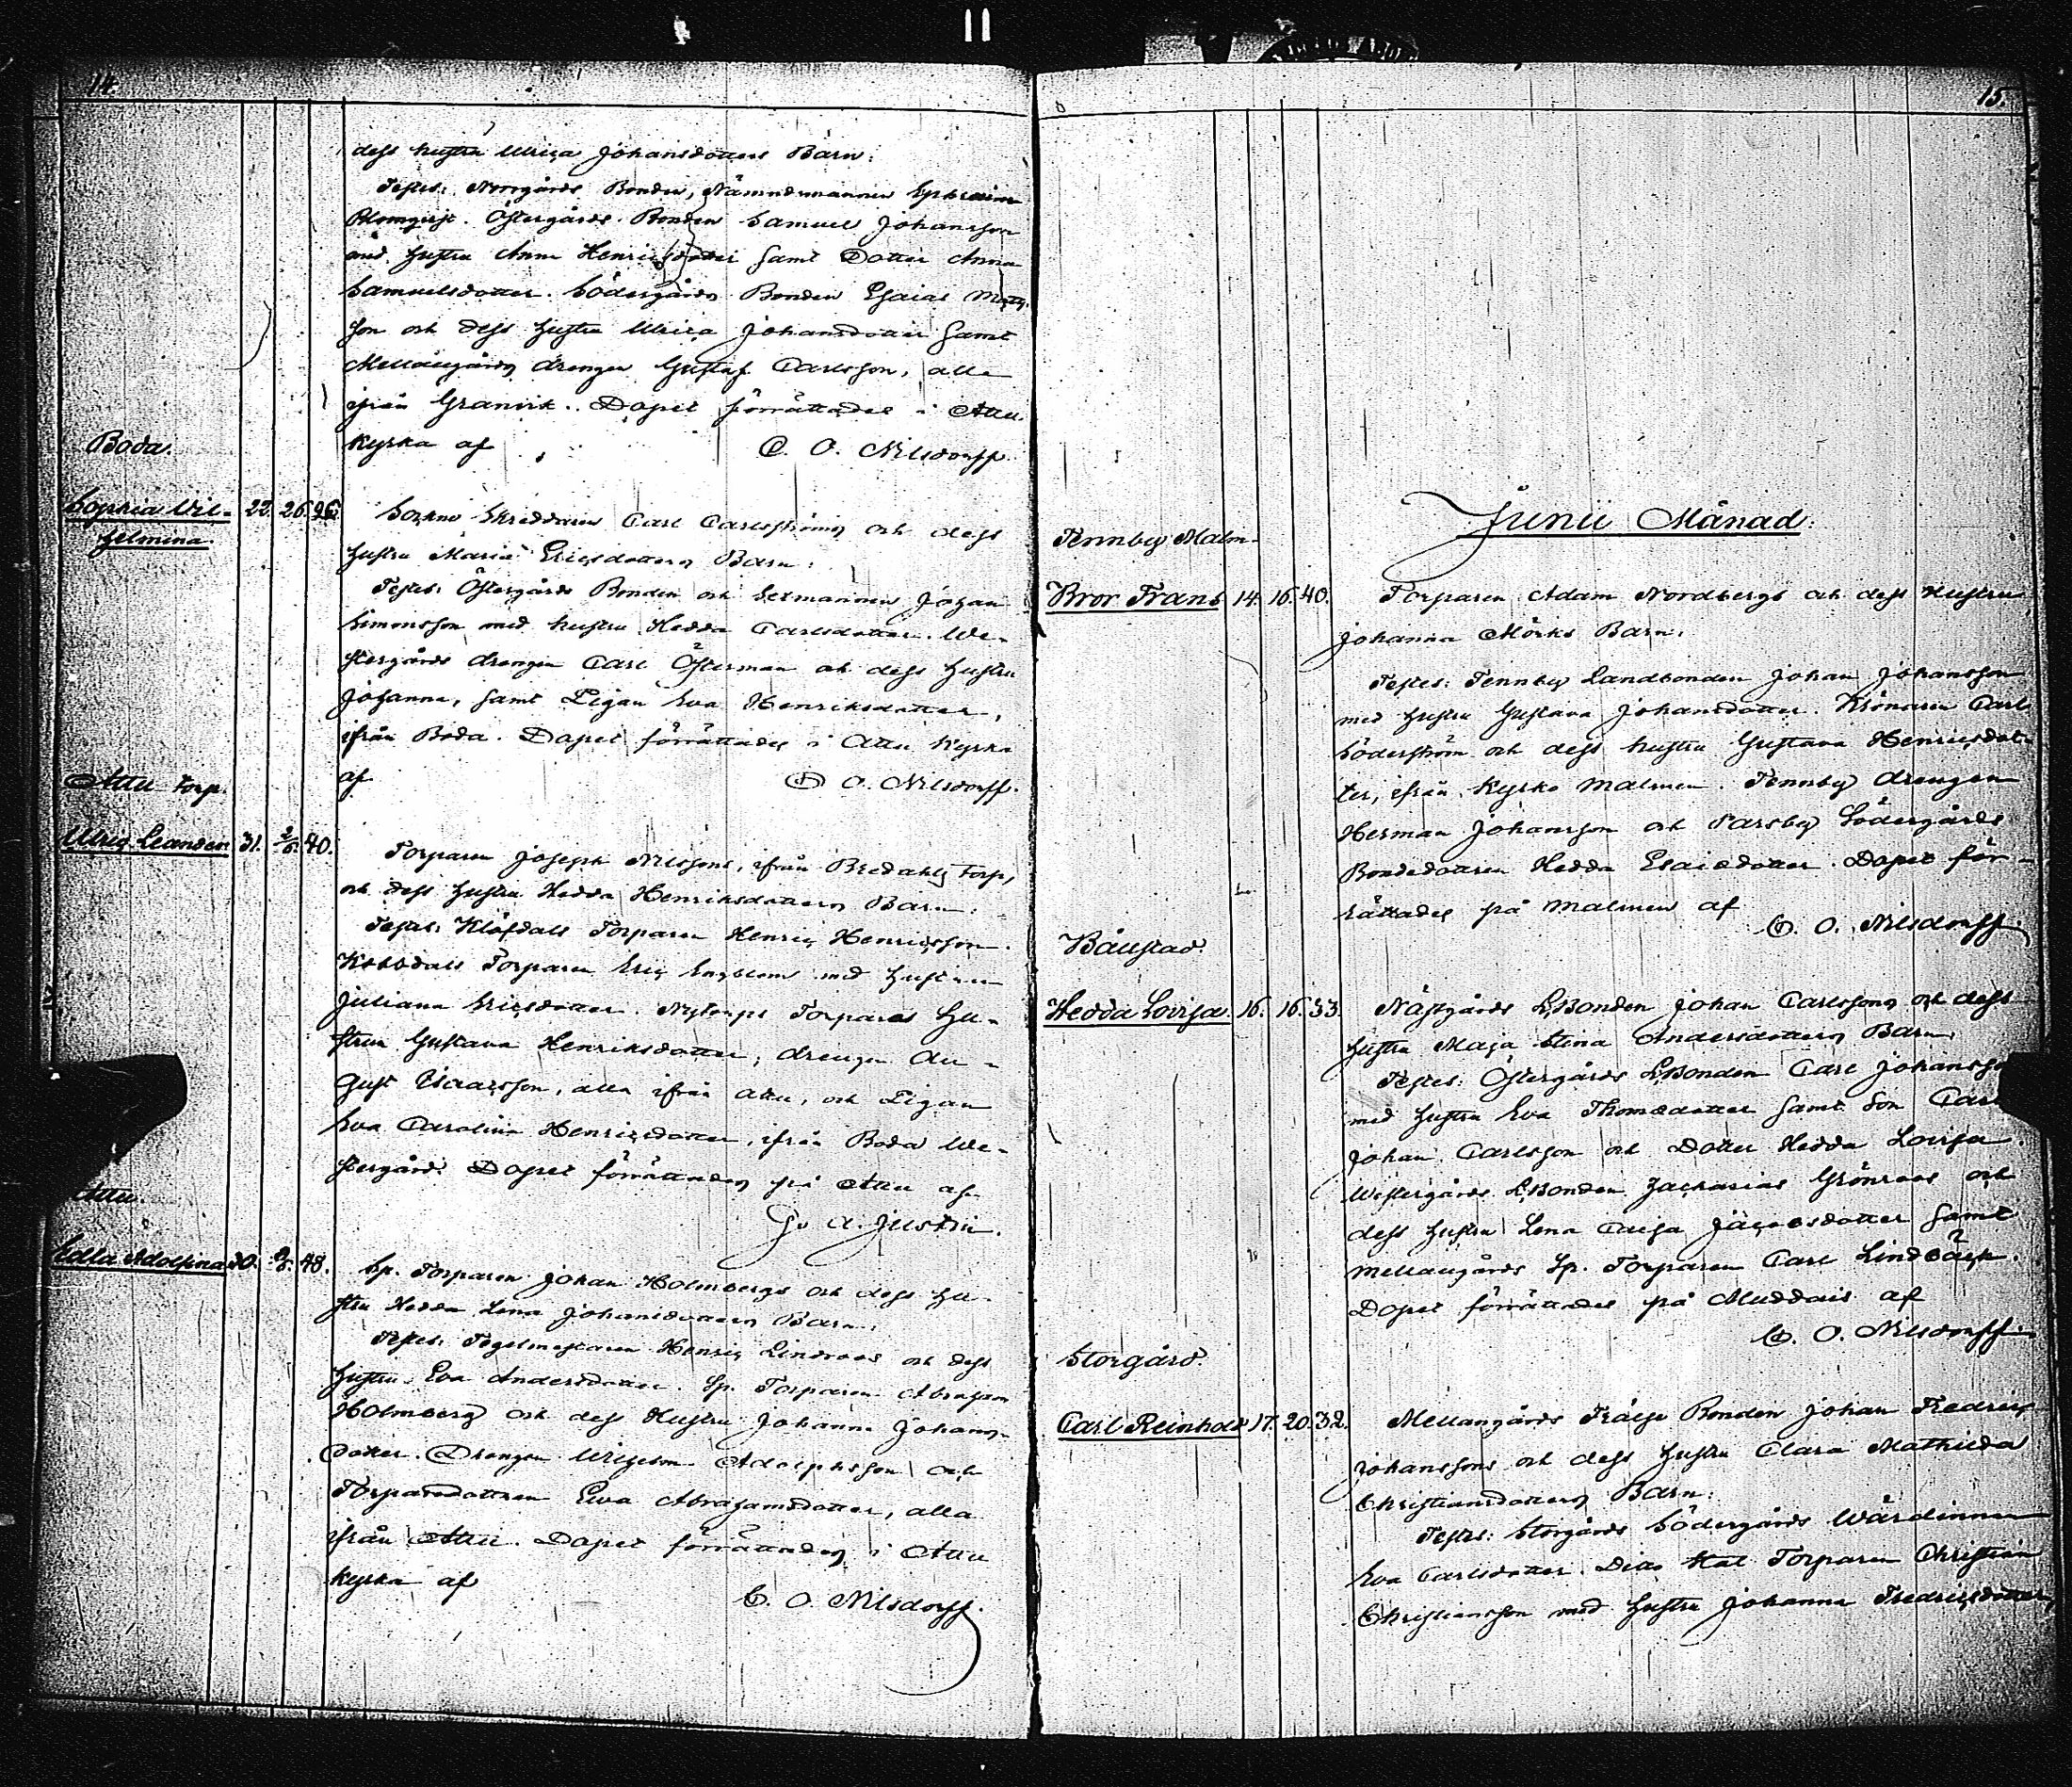 14.
dess hustru Ulrica Johansdotters Barn:
Testes: Norrgårds Bonden, Nämndemannen Ephraim
Blomqvist. Östergårds Bonden Samuel Johansson
med hustru Anna Henricsdotter samt Dotter Anna
Samuelsdotter. Södergårds Bonden Esaias Matts-
son och dess hustru Ulrica Johansdotter samt
Mellangårds drengen Gustaf Carlsson, alla
ifrån Granvik. Dopet förrättades i Attu
Kyrka af C. O. Nilsdorff.
Boda.
Sophia Vil-
helmina. 22. 26. 26.
Sockne Skreddaren Carl Carlströms och dess
hustru Maria Ericsdotters Barn:
Testes: Östergårds Bonden och Sexmannen Johan
Simonsson med hustru Hedda Carlsdotter. We-
stergårds drengen Carl Österman och dess hustru
Johanna, samt Pigan Eva Henriksdotter,
ifrån Boda. Dopet förrättades i Attu Kyrka
af C. O. Nilsdorff.
Attu Torp.
Ulric Leander 31. 2/6. 40.
Torparen Joseph Nilssons, ifrån Bredahls Torp,
och dess hustru Hedda Henriksdotters Barn:
Testes: Klöfdals Torparen Henric Henricsson.
Torparen Eric Engblom med hustru
Juliana Ericsdotter. Nytorps Torparens Hu-
stru Gustava Henriksdotter, drengen Au-
gust Isacsson, alla ifrån Attu, och Pigan
Eva Carolina Henricsdotter, ifrån Boda We-
stergård. Dopet förrättades på Attu af
G. A. Justin.
Attu.
Edla Adolfina 30. 48.
Sp. Torparen Johan Holmbergs och dess hu-
stru Hedda Lena Johansdotters Barn:
Testes: Tegelmestaren Henric Lindroos och dess
hustru Eva Andersdotter. Sp. Torparen Abraham
Holmberg och dess Hustru Johanna Johans-
dotter. Drengen Wilhelm Adolphsson och
Torparedottren Eva Abrahamsdotter, alla
ifrån Attu. Dopet förrättades i Attu
Kyrka af C. O. Nilsdorff.
15.
Junii Månad:
Tennby Malm.
Bror Frans 14. 16. 40.
Torparen Adam Nordbergs och dess Hustru
Johanna Mörks Barn:
Testes: Tennby Landbonden Johan Johansson
med hustru Gustava Johansdotter. Carl
Söderström och dess hustru Gustava Henricsdot-
ter, ifrån Kyrko Malmen. Tennby drengen
Herman Johansson och Parsby Södergårds
Bondedottren Hedda Esaiedotter. Dopet för-
rättades på Malmen af
C. O. Nilsdorff.
Båustad.
Hedda Lovisa. 16. 16. 33.
Nästgårds L.Bonden Johan Carlssons och dess
hustru Maja Stina Andersdotters Barn:
Testes: Östergårds L.Bonden Carl Johansson
med hustru Eva Thomasdotter samt Son Carl
Johan Carlsson och Dotter Hedda Lovisa.
Westergårds L.Bonden Zacharias Grönroos och
dess hustru Lena Caisa Jacobsdotter samt
Mellangårds Sp. Torparen Carl Lindbäck.
Dopet förrättades på Muddais af
C. O. Nilsdorff.
Storgård.
Carl Reinhold 17. 20. 32.
Mellangårds Frälse Bonden Johan Fredric
Johanssons och dess hustru Clara Mathilda
Christiansdotters Barn:
Testes: Storgårds Södergårds Wärdinnan
Eva Carlsdotter. Dito Torparen Christian
Christiansson med hustru Johanna Fredricsdotter,